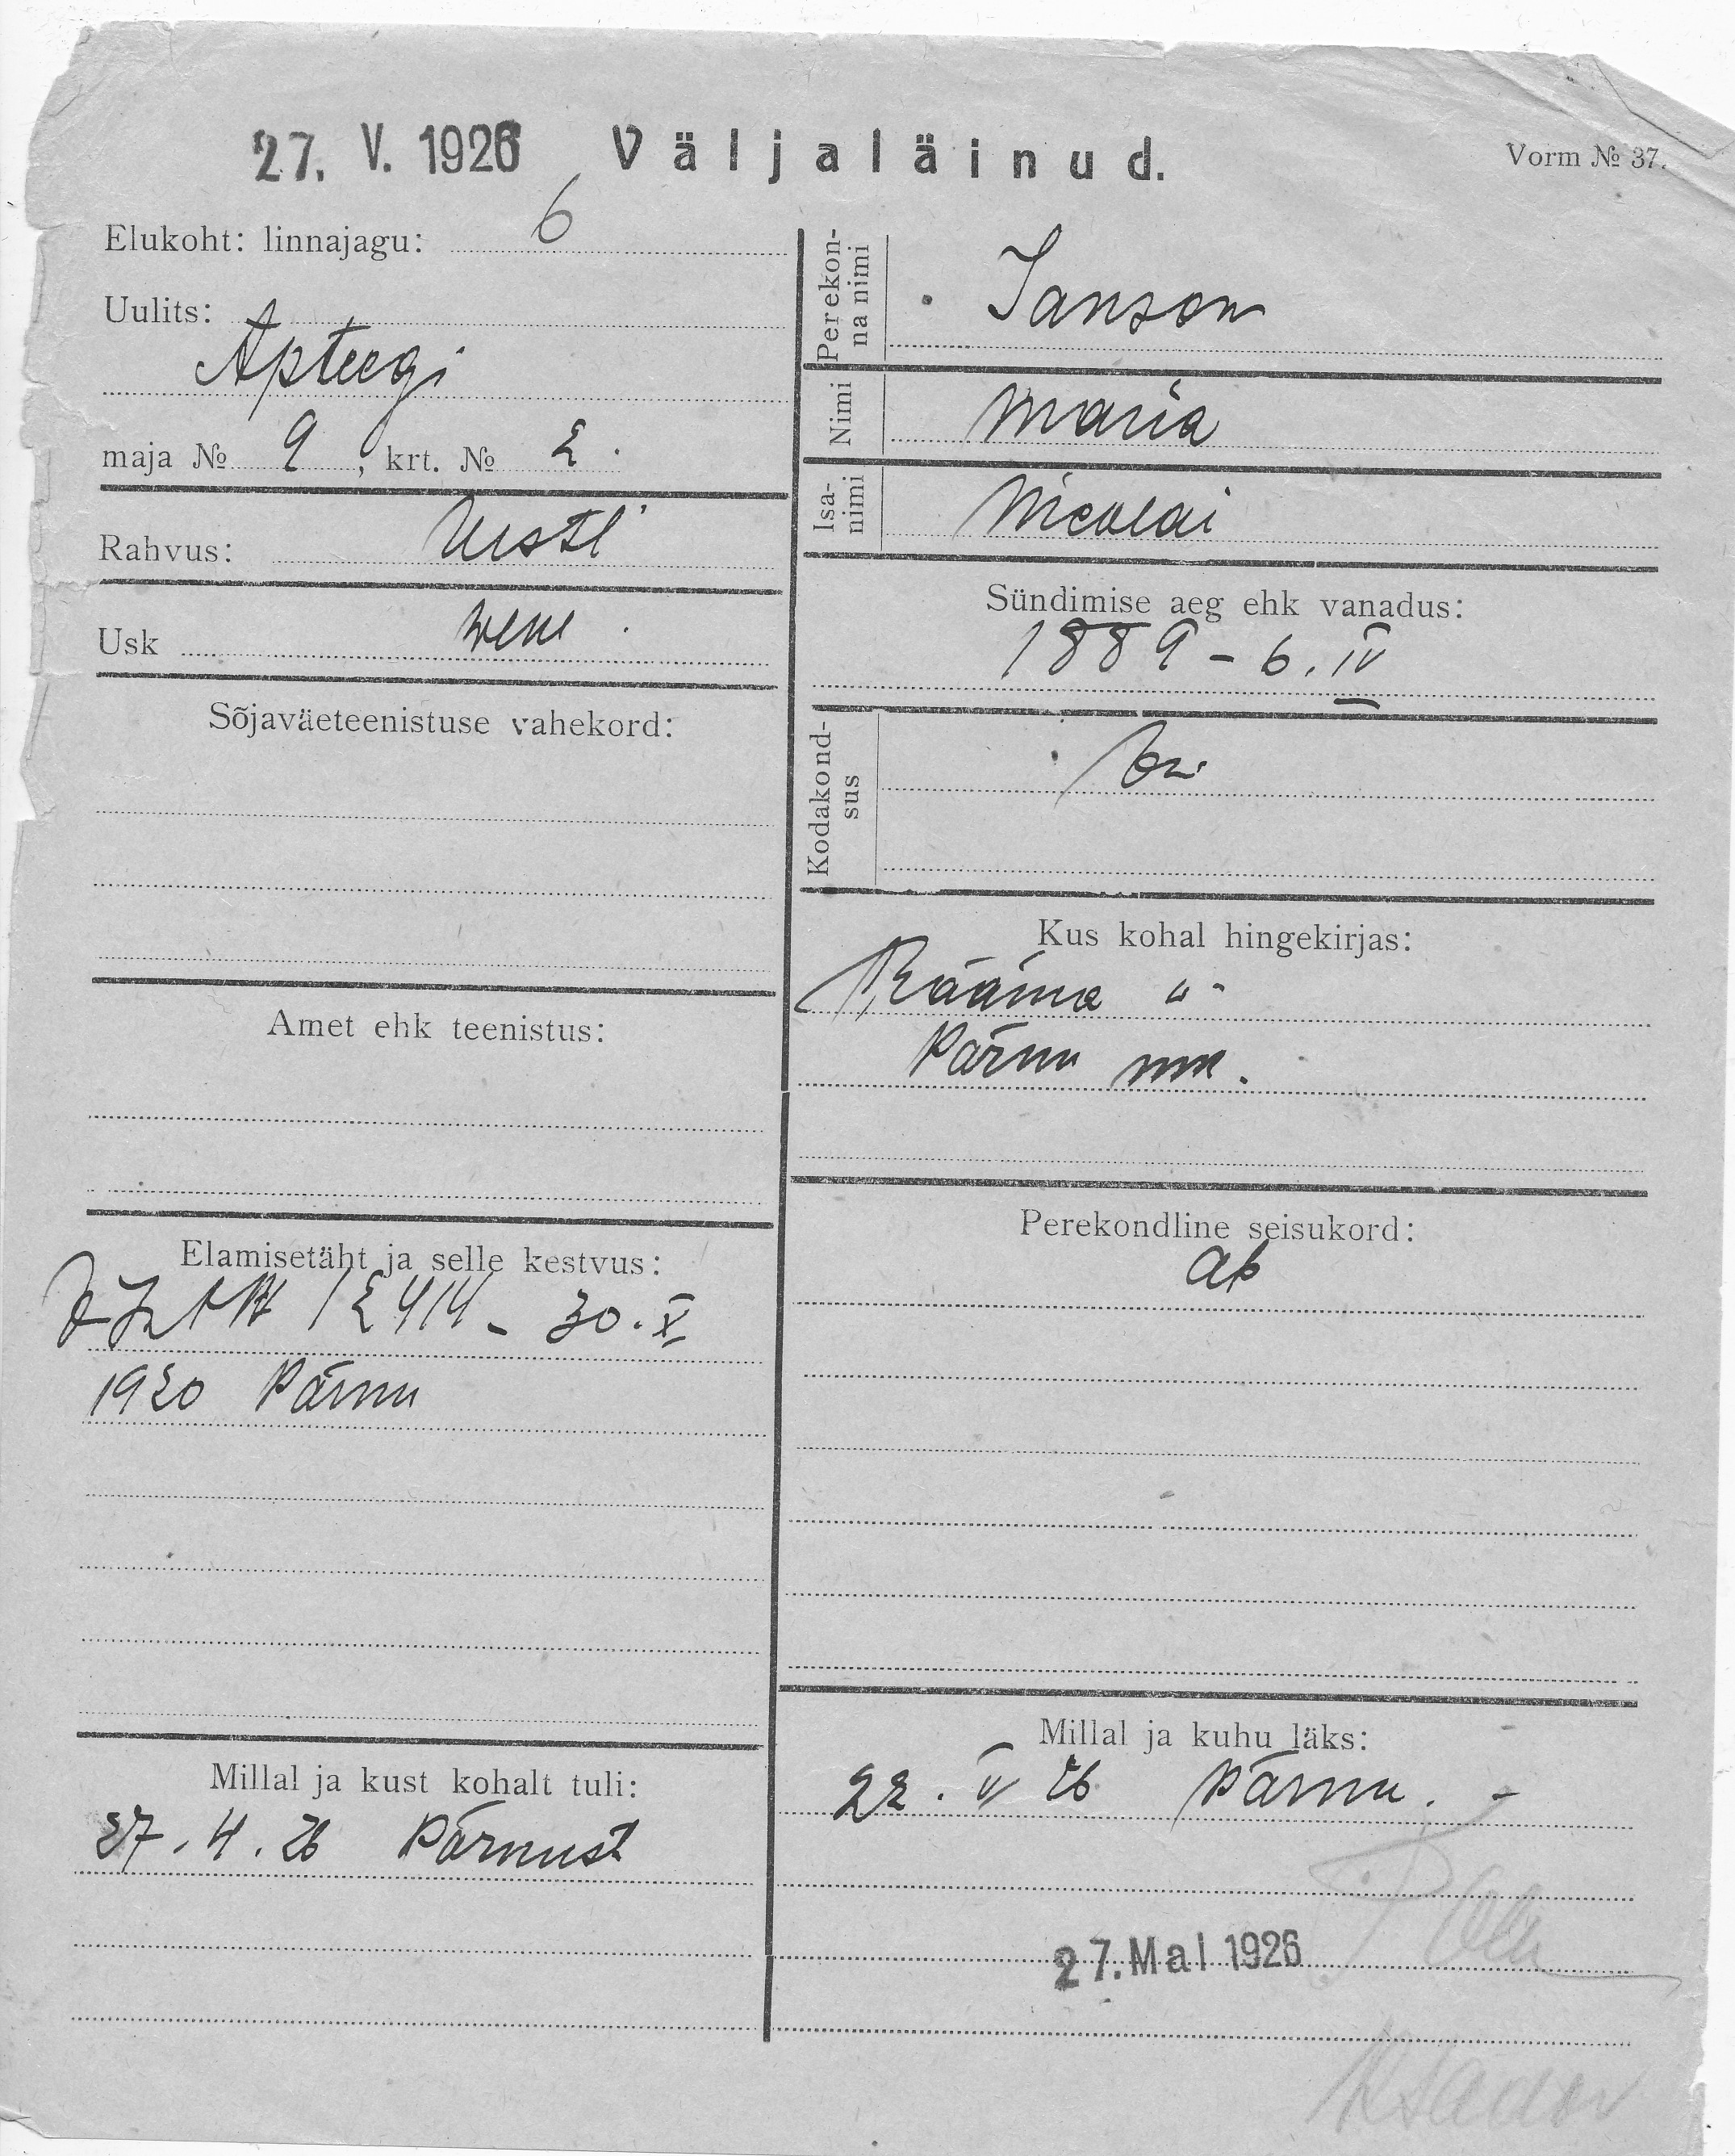 27. V. 1926 Väljaläinud. Vorm № 37.
Elukoht: linnajagu: 6
Uulits:
Apteegi
maja № 9, krt. № 2.
Rahvus: Eesti
Usk wene.
Sõjaväeteenistuse vahekord:
Amet ehk teenistus:
Elamisetäht ja selle kestvus:
12414 - 30. X
1920 Pärnu
Millal ja kust kohalt tuli:
27. 4. 26 Pärnust
Perekonna nimi
Janson
Nimi
Maria
Isanimi
Nicolai
Sündimise aeg ehk vanadus:
1889 - 6. IV
Kodakondsus
Kus kohal hingekirjas:
Rääma
Pärnu mk.
Perekondline seisukord:
ab
Millal ja kuhu läks:
22. V 26 Pärnu. -
27. Mai 1926